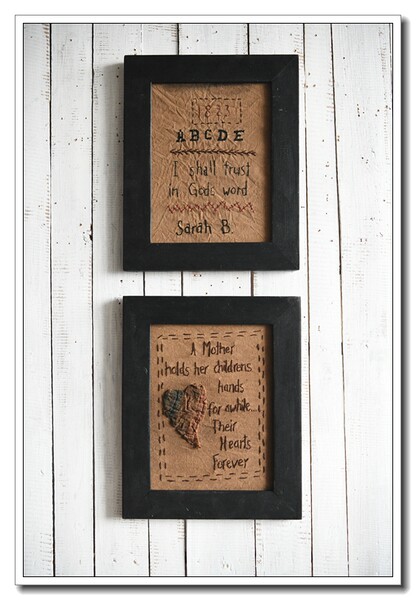 1823
ABCDE
I shall trust
in Gods word
Sarah B.
A Mother
holds her childrens
hands
for awhile...
Their
Hearts
Forever